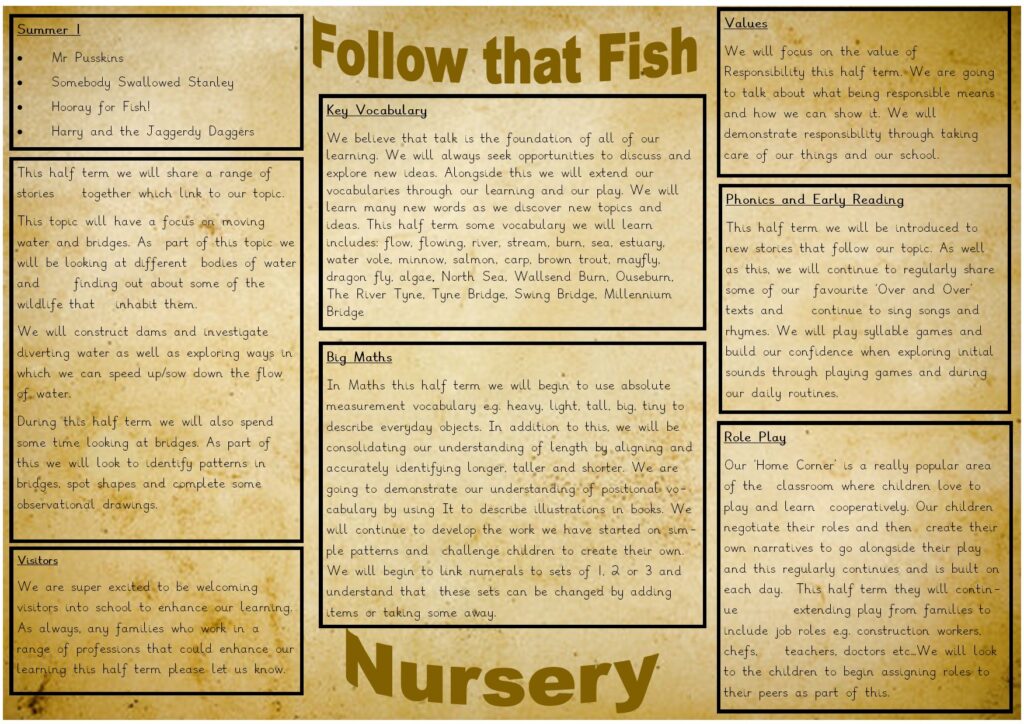 Follow that Fish
Summer 1
• Mr Pusskins
• Somebody Swallowed Stanley
• Hooray for Fish!
• Harry and the Jaggerdy Daggers
This half term we will share a range of
stories together which link to our topic.
This topic will have a focus on moving
water and bridges. As part of this topic we
will be looking at different bodies of water
and finding out about some of the
wildlife that inhabit them.
We will construct dams and investigate
diverting water as well as exploring ways in
which we can speed up/sow down the flow
of water.
During this half term we will also spend
some time looking at bridges. As part of
this we will look to identify patterns in
bridges, spot shapes and complete some
observational drawings.
Visitors
We are super excited to be welcoming
visitors into school to enhance our learning.
As always, any families who work in a
range of professions that could enhance our
learning this half term please let us know.
Key Vocabulary
We believe that talk is the foundation of all of our
learning. We will always seek opportunities to discuss and
explore new ideas. Alongside this we will extend our
vocabularies through our learning and our play. We will
learn many new words as we discover new topics and
ideas. This half term some vocabulary we will learn
includes: flow, flowing, river, stream, burn, sea, estuary,
water vole, minnow, salmon, carp, brown trout, mayfly,
dragon fly, algae, North Sea, Wallsend Burn, Ouseburn,
The River Tyne, Tyne Bridge, Swing Bridge, Millennium
Bridge
Big Maths
In Maths this half term we will begin to use absolute
measurement vocabulary e.g. heavy, light, tall, big, tiny to
describe everyday objects. In addition to this, we will be
consolidating our understanding of length by aligning and
accurately identifying longer, taller and shorter. We are
going to demonstrate our understanding of positional vo-
cabulary by using It to describe illustrations in books. We
will continue to develop the work we have started on sim-
ple patterns and challenge children to create their own.
We will begin to link numerals to sets of 1, 2 or 3 and
understand that these sets can be changed by adding
items or taking some away.
Values
We will focus on the value of
Responsibility this half term. We are going
to talk about what being responsible means
and how we can show it. We will
demonstrate responsibility through taking
care of our things and our school.
Phonics and Early Reading
This half term we will be introduced to
new stories that follow our topic. As well
as this, we will continue to regularly share
some of our favourite 'Over and Over'
texts and continue to sing songs and
rhymes. We will play syllable games and
build our confidence when exploring initial
sounds through playing games and during
our daily routines.
Role Play
Our 'Home Corner' is a really popular area
of the classroom where children love to
play and learn cooperatively. Our children
negotiate their roles and then create their
own narratives to go alongside their play
and this regularly continues and is built on
each day. This half term they will contin-
ue extending play from families to
include job roles e.g. construction workers,
chefs, teachers, doctors etc...We will look
to the children to begin assigning roles to
their peers as part of this.
Nursery